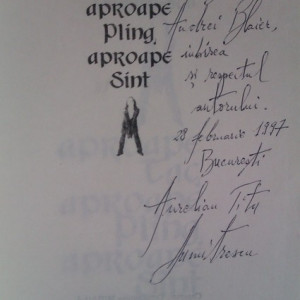 aproape
Pling,
aproape
Sint
Andrei Blaier,
iubirea
și respectul
autorului.
28 februarie 1997
București
Aurelian Titu
Dumitrescu